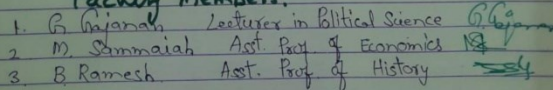 Faculty Members.
1. G Gajanah Lecturer in Political Science
2 M. Sammaiah Asst. Prof of Economics
3 B. Ramesh Asst. Prof of History